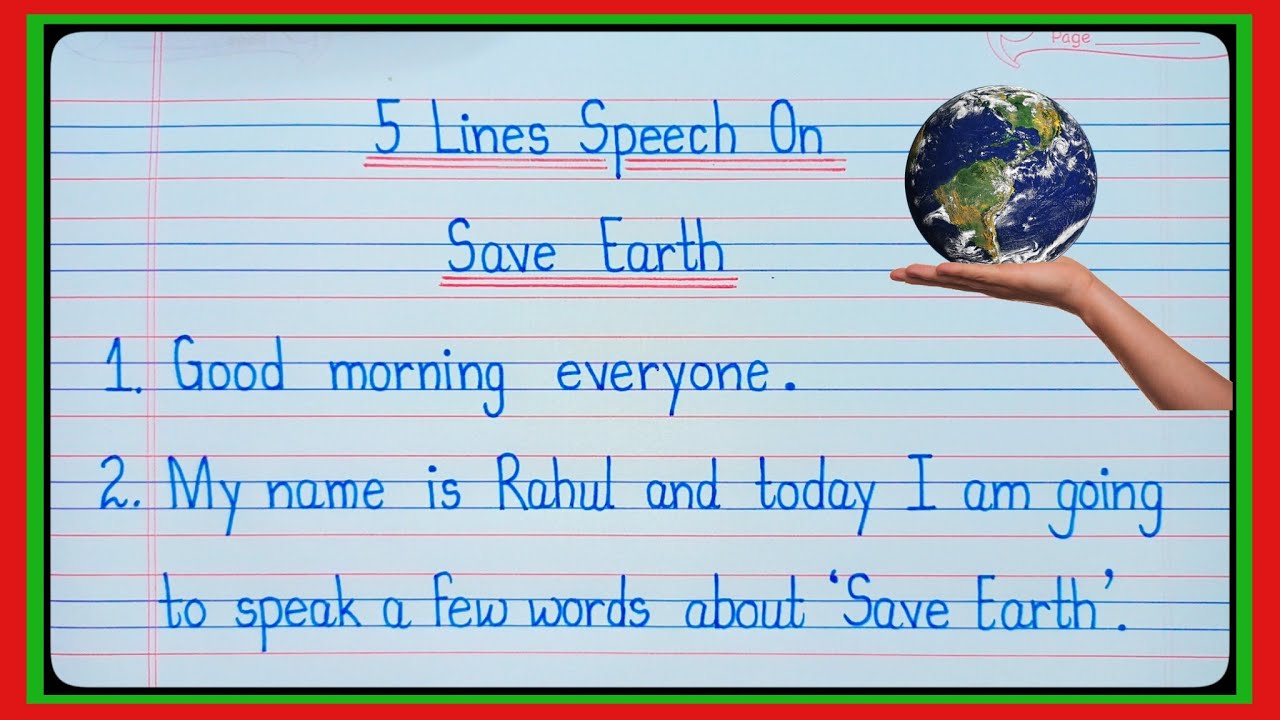 Page
5 Lines Speech On
Save Earth
1. Good morning everyone.
2. My name is Rahul and today I am going
to speak a few words about ‘Save Earth’.